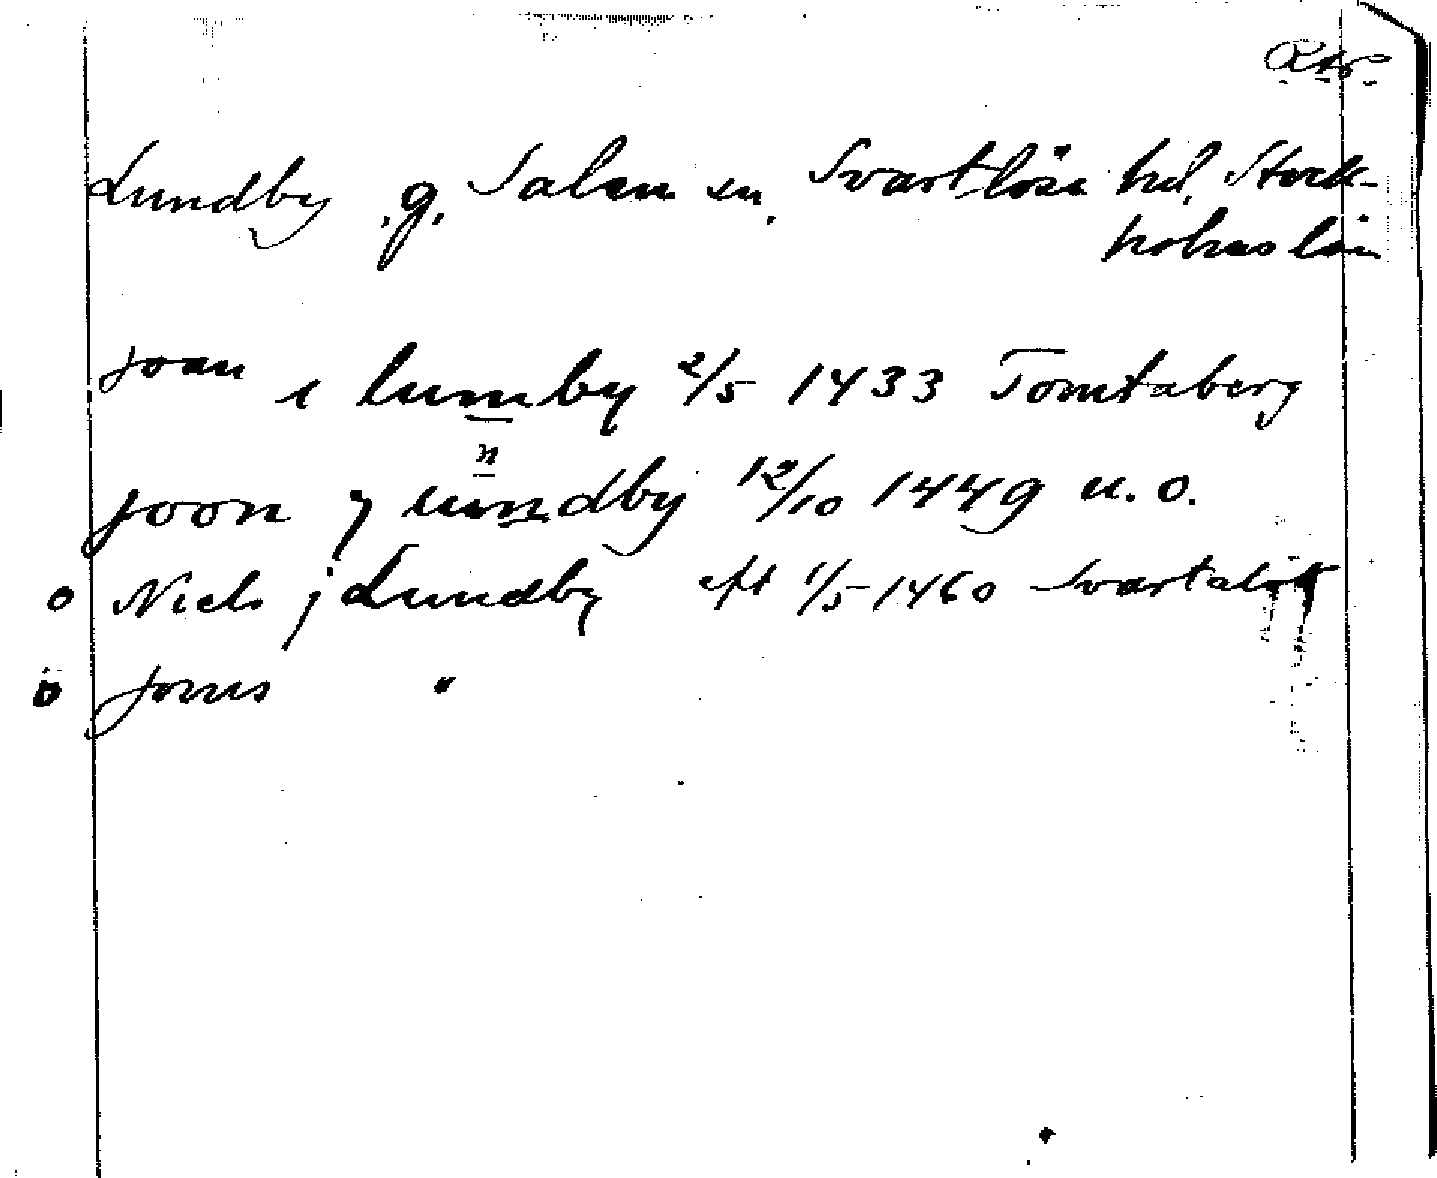 Lundby .g. Salem sn, Svartlösa hd, Stock-
holms län
joan i lumby 2/5 1433 Tomtaberg
n
joon j lundby 12/10 1449 u. o.
o Niels j Lundby eft 1/5 1460 Svartalöt
o Jöns "